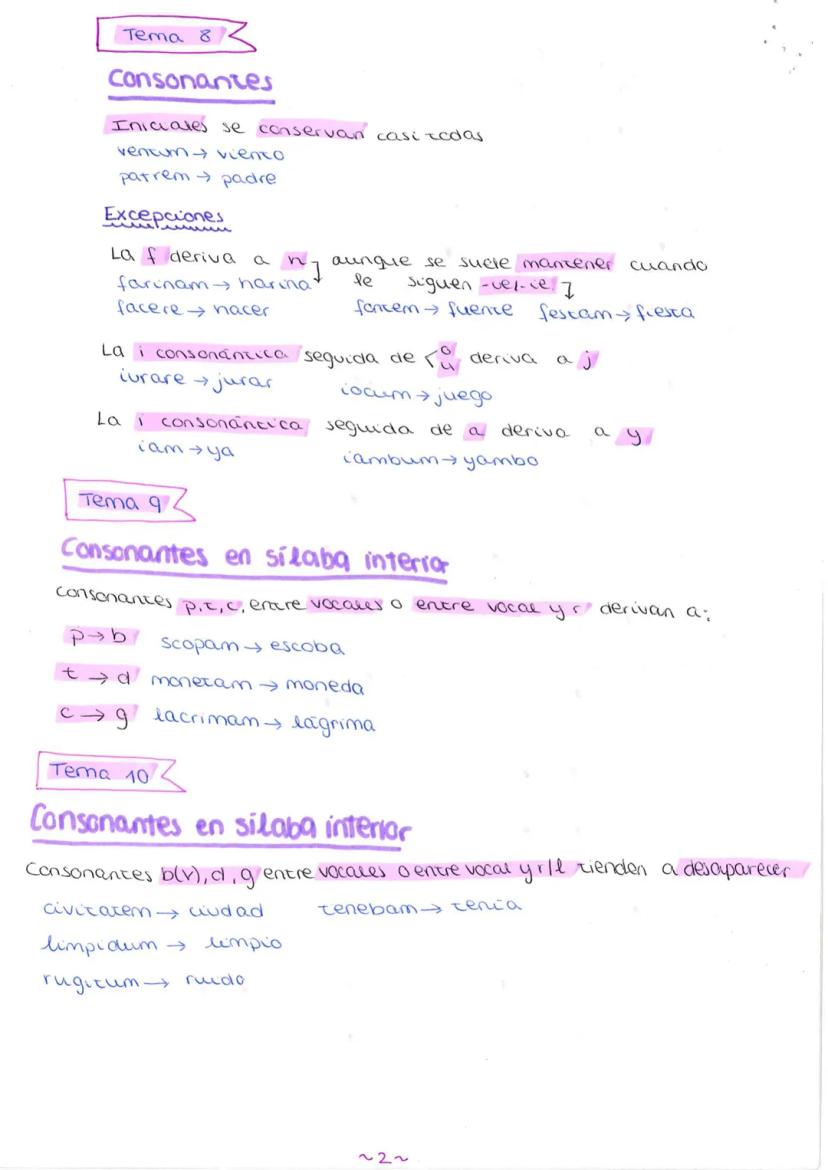 Tema 8
Consonantes
Iniciales se conservan casi todas
ventum → viento
patrem → padre
Excepciones
La f deriva a h, aunque se suele mantener cuando
farinam → harina le siguen -ue/-ie
facere → hacer fontem → fuente festam → fiesta
La i consonántica seguida de o u deriva a j
iurare → jurar iocum → juego
La i consonántica seguida de a deriva a y
iam → ya iambum → yambo
Tema 9
Consonantes en sílaba interior
Consonantes p, t, c, entre vocales o entre vocal y r derivan a:
p → b scopam → escoba
t → d monetam → moneda
c → g lacrimam → lágrima
Tema 10
Consonantes en sílaba interior
Consonantes b(v), d, g entre vocales o entre vocal y r/l tienden a desaparecer
civitatem → ciudad tenebam → tenía
limpidum → limpio
rugitum → ruido
~2~